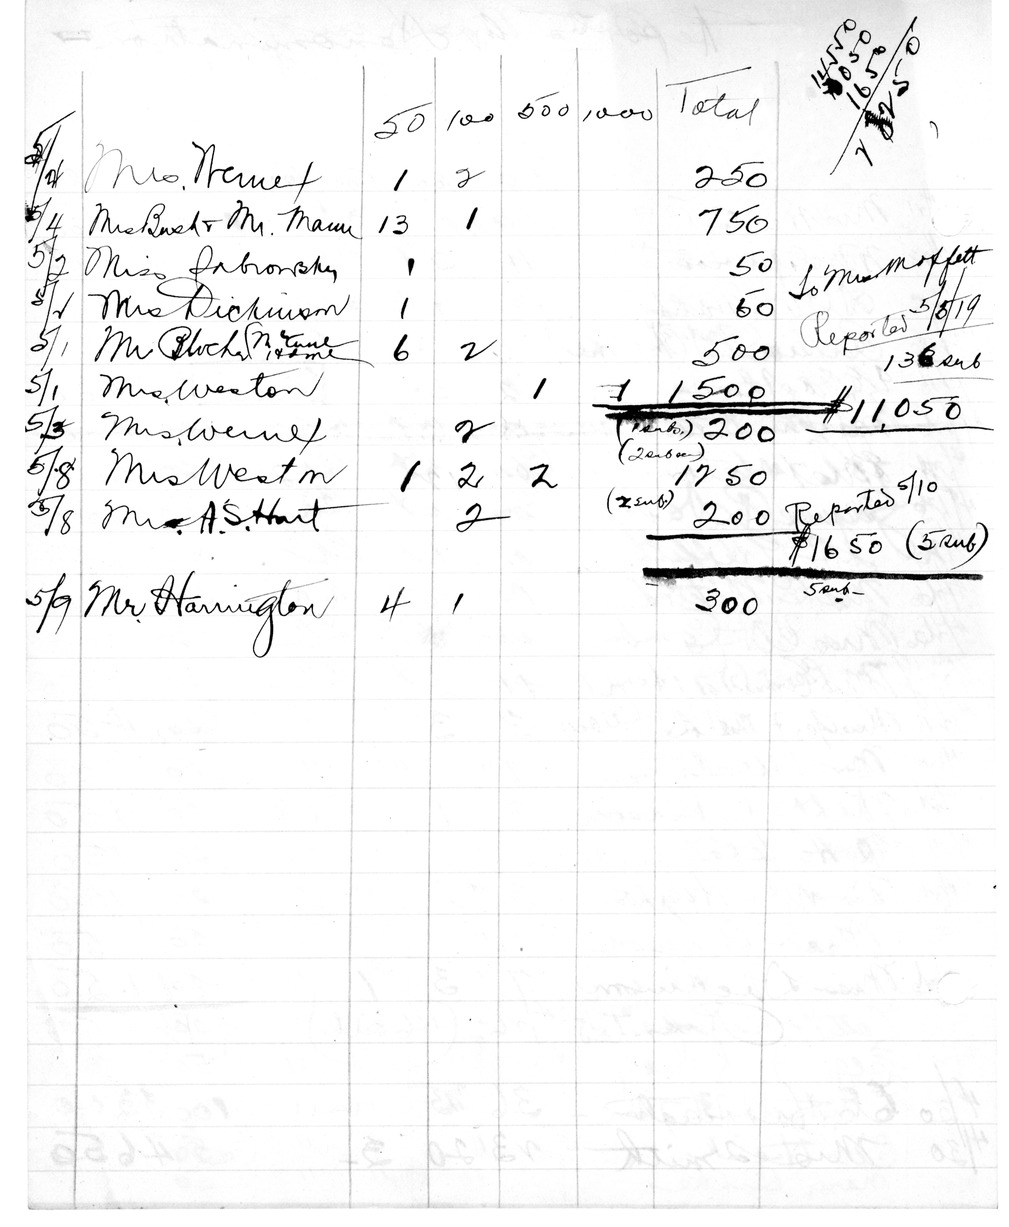 50 100 500 1000 Total
14550
1650
5/4 Mrs. Wernet 1 2 250
5/4 Mrs Bush + Mr. Mann 13 1 750
5/2 Miss 1 50
5/2 Mrs Dickinson 1 50
5/1 Mr. 6 2 500
5/1 Mrs. Weston 1 1 1500
To Mrs Moffett
Reported 5/5/19
136 sub
$11,050
5/5 Mrs. Wernet 2 (1 sub.) 200
5/8 Mrs Weston 1 2 2 (2 sub) 1250
5/8 A.S. Hart 2 (2 sub) 200
Reported 5/10
$1650 (5 sub)
5/9 Mr. Harrington 4 1 300 5 sub